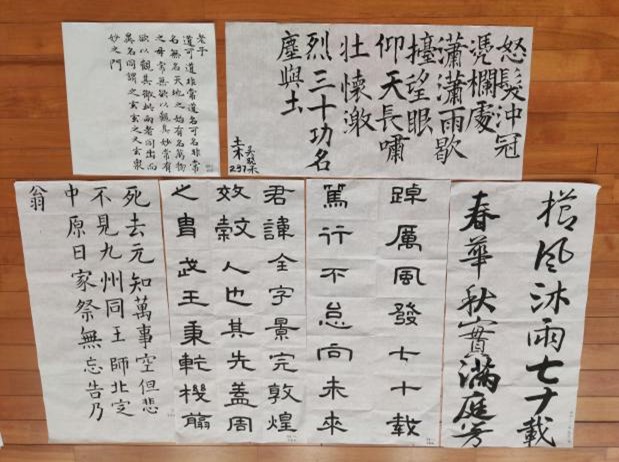 老子
道可道非常道名可名非常
名無名天地之始有名萬物
之母常無欲以觀其妙常有
欲以觀其徼此兩者同出而
異名同謂之玄玄之又玄衆
妙之門
怒髮沖冠
憑欄處
瀟瀟雨歇
擡望眼
仰天長嘯
壯懷激
烈三十功名
塵與土
土木
237
死去元知萬事空但悲
不見九州同王師北定
中原日家祭無忘告乃
翁
君諱全字景完敦煌
效穀人也其先蓋周
之胄武王秉乾機翦
踔厲風發七十載
篤行不怠向未來
櫛風沐雨七十載
春華秋實滿庭芳